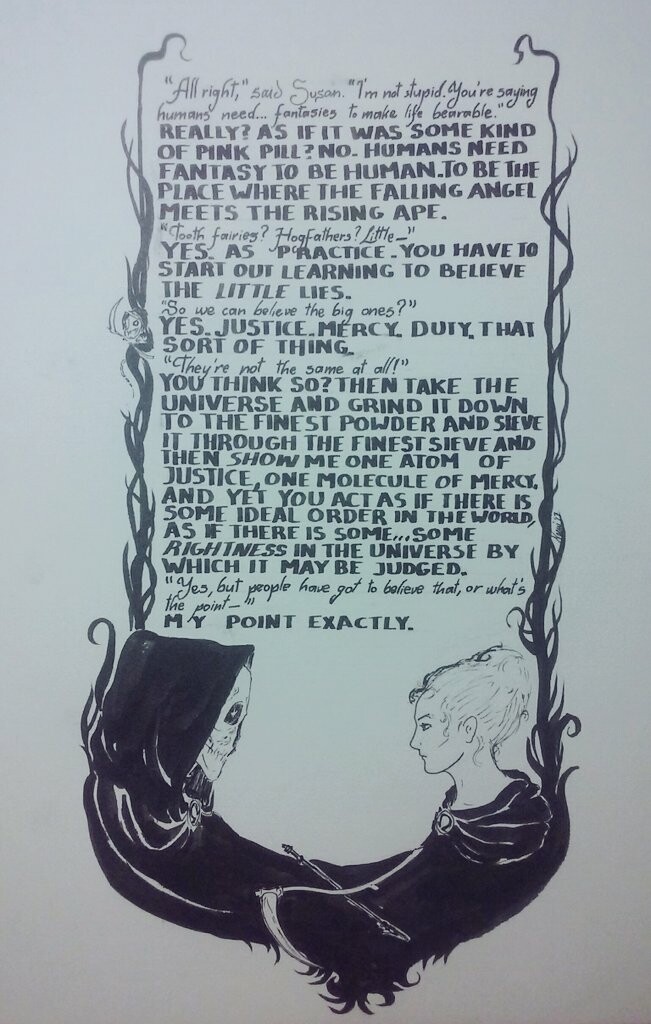 "All right," said Susan. "I'm not stupid. You're saying
humans need... fantasies to make life bearable."
REALLY? AS IF IT WAS SOME KIND
OF PINK PILL? NO. HUMANS NEED
FANTASY TO BE HUMAN. TO BE THE
PLACE WHERE THE FALLING ANGEL
MEETS THE RISING APE.
"Tooth fairies? Hogfathers? Little—"
YES. AS PRACTICE. YOU HAVE TO
START OUT LEARNING TO BELIEVE
THE LITTLE LIES.
"So we can believe the big ones?"
YES. JUSTICE. MERCY. DUTY. THAT
SORT OF THING.
"They're not the same at all!"
YOU THINK SO? THEN TAKE THE
UNIVERSE AND GRIND IT DOWN
TO THE FINEST POWDER AND SIEVE
IT THROUGH THE FINEST SIEVE AND
THEN SHOW ME ONE ATOM OF
JUSTICE, ONE MOLECULE OF MERCY.
AND YET YOU ACT AS IF THERE IS
SOME IDEAL ORDER IN THE WORLD,
AS IF THERE IS SOME... SOME
RIGHTNESS IN THE UNIVERSE BY
WHICH IT MAY BE JUDGED.
"Yes, but people have got to believe that, or what's
the point—"
MY POINT EXACTLY.